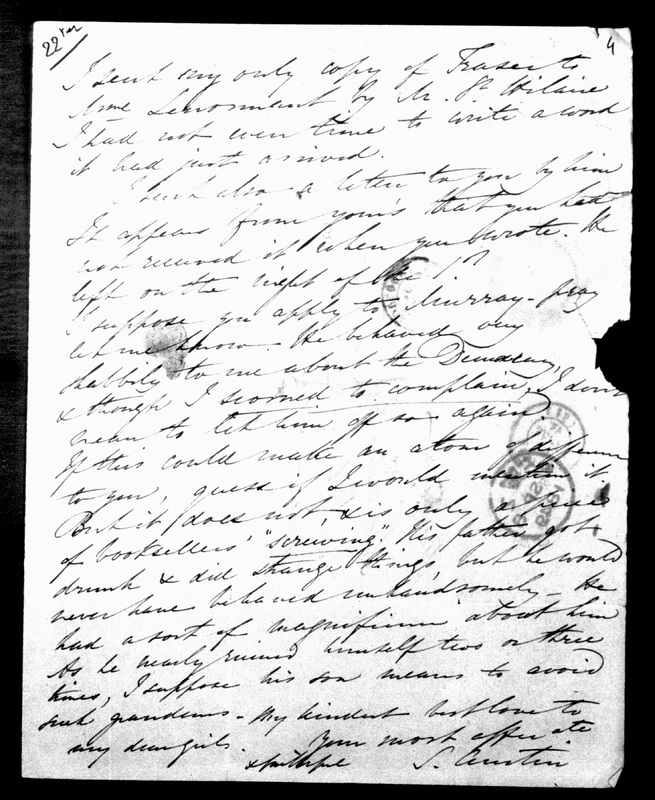 22 ter
4
I sent my only copy of Fraser to
Mme Lenormant by M. St Hilaire
I had not even time to write a word
it had just arrived.
I sent also a letter to you by him
It appears from your's that you had
not received it when you wrote. He
left on the night of the
I suppose you apply to Murray - pray
let me know. He behaved very
shabbily to me about the Democracy,
& though I scorned to complain, I don't
mean to let him off so again.
If this could make an atom of difference
to you, guess if I would mention it
But it does not, & is only a piece
of booksellers' "screwing". His father got
drunk & did strange things, but he would
never have behaved unhandsomely - He
had a sort of magnificence about him
As he nearly ruined himself two or three
times, I suppose his son means to avoid
such grandeurs - My kindest best love to
my dear girls. Your most affec ate
& faithful S. Austin